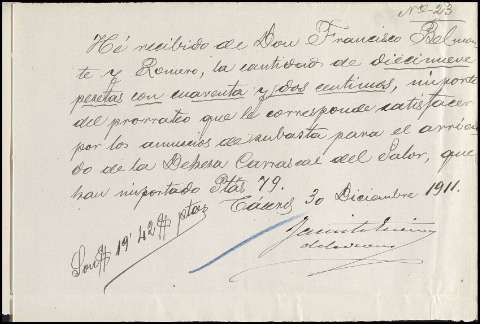 Nº 23
Hé recibido de Don Francisco Belmon-
te y Romero, la cantidad de diecinueve
pesetas con cuarenta y dos centimos, importe
del prorrateo que le corresponde satisfacer
por los anuncios de subasta para el arrien-
do de la Dehesa Carrascal del Salor, que
han importado Ptas 79.
Cáceres 30 Diciembre 1911.
Son # 19'42 # ptas